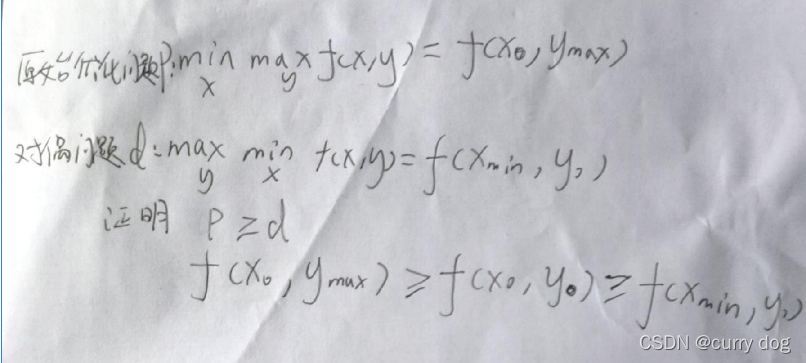 原始优化问题P:min max f(x,y) = f(x₀, ymax)
x y
对偶问题d:max min f(x,y)=f(xmin, y₀)
y x
证明 P≥d
f(x₀, ymax) ≥ f(x₀, y₀) ≥ f(xmin, y₀)
CSDN @curry dog